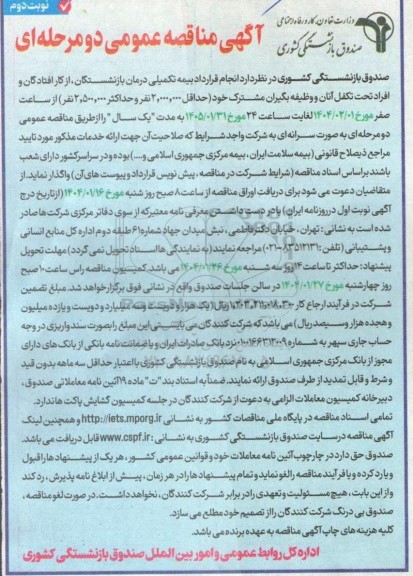 نوبت دوم
وزارت تعاون، کار و رفاه اجتماعی
صندوق بازنشستگی کشوری
آگهی مناقصه عمومی دو مرحله ای
صندوق بازنشستگی کشوری در نظر دارد انجام قرارداد بیمه تکمیلی درمان بازنشستگان، از کار افتادگان و
افراد تحت تکفل آنان و وظیفه بگیران مشترک خود (حداقل ۲,۰۰۰,۰۰۰ نفر و حداکثر ۲,۵۰۰,۰۰۰ نفر) از ساعت
صفر مورخ ۱۴۰۴/۰۲/۰۱ لغایت ساعت ۲۴ مورخ ۱۴۰۵/۰۱/۳۱ به مدت "یک سال" را از طریق مناقصه عمومی
دو مرحله ای به صورت سراسری به شرکت واجد شرایط که صلاحیت آن جهت ارائه خدمات مذکور مورد تایید
مراجع ذیصلاح قانونی (بیمه سلامت ایران، بیمه مرکزی جمهوری اسلامی و...) بوده و در سراسر کشور دارای شعب
باشند بر اساس اسناد مناقصه (شرایط شرکت در مناقصه، پیش نویس قرارداد و پیوست های آن) واگذار نماید. از
متقاضیان دعوت می شود برای دریافت اوراق مناقصه از ساعت ۸ صبح روز شنبه مورخ ۱۴۰۴/۰۱/۱۶ (از تاریخ درج
آگهی نوبت اول در روزنامه ایران) با در دست داشتن معرفی نامه معتبر که از سوی دفاتر مرکزی شرکت ها صادر
شده است به نشانی: تهران، خیابان دکتر فاطمی، نبش میدان جهاد شماره ۶۱ طبقه دوم اداره کل منابع انسانی
و پشتیبانی (تلفن: ۸۳۵۱۲۱۳۱-۰۲۱) مراجعه نمایند (به نمایندگی ها اسناد تحویل نمی گردد) مهلت تحویل
پیشنهاد: حداکثر تا ساعت ۱۴ روز سه شنبه مورخ ۱۴۰۴/۰۱/۲۶ می باشد. کمیسیون مناقصه راس ساعت ۱۰ صبح
روز چهارشنبه مورخ ۱۴۰۴/۰۱/۲۷ در سالن جلسات صندوق واقع در نشانی فوق برگزار خواهد شد. مبلغ تضمین
شرکت در فرآیند ارجاع کار ریال (یک هزار و دویست و سه میلیارد و دویست و یازده میلیون
و هجده هزار و سیصد ریال) می باشد که شرکت کنندگان می بایستی این مبلغ را بصورت سند واریزی در وجه
حساب جاری سپهر به شماره نزد بانک صادرات ایران و یا ضمانت نامه بانکی از بانک های دارای
مجوز از بانک مرکزی جمهوری اسلامی به نام صندوق بازنشستگی کشوری با اعتبار حداقل سه ماهه بدون قید
و شرط و قابل تمدید از طرف صندوق ارائه نمایند. ضمناً به استناد بند "ت" ماده ۱۹ آئین نامه معاملاتی صندوق،
دبیرخانه کمیسیون معاملات الزامی به دعوت از شرکت کنندگان در جلسه کمیسیون گشایش پاکت ها ندارد.
تمامی اسناد مناقصه در پایگاه ملی مناقصات کشور به نشانی http://iets.mporg.ir و همچنین لینک
آگهی مناقصه در سایت صندوق بازنشستگی کشوری به نشانی: www.cspf.ir قابل دریافت می باشد.
صندوق حق دارد در چارچوب آئین نامه معاملات خود و قوانین عمومی کشور، هر یک از پیشنهادها را قبول
و یا رد کرده و یا فرآیند مناقصه را لغو نماید و تمام پیشنهادها را در هر زمان، پیش از ابلاغ نامه پذیرش، رد کند
و از این بابت، هیچ مسئولیت و تعهدی را در برابر شرکت کنندگان، نخواهد داشت. در صورت لغو مناقصه،
صندوق بی درنگ شرکت کنندگان را از تصمیم خود مطلع می سازد.
کلیه هزینه های چاپ آگهی مناقصه به عهده برنده می باشد.
اداره کل روابط عمومی و امور بین الملل صندوق بازنشستگی کشوری